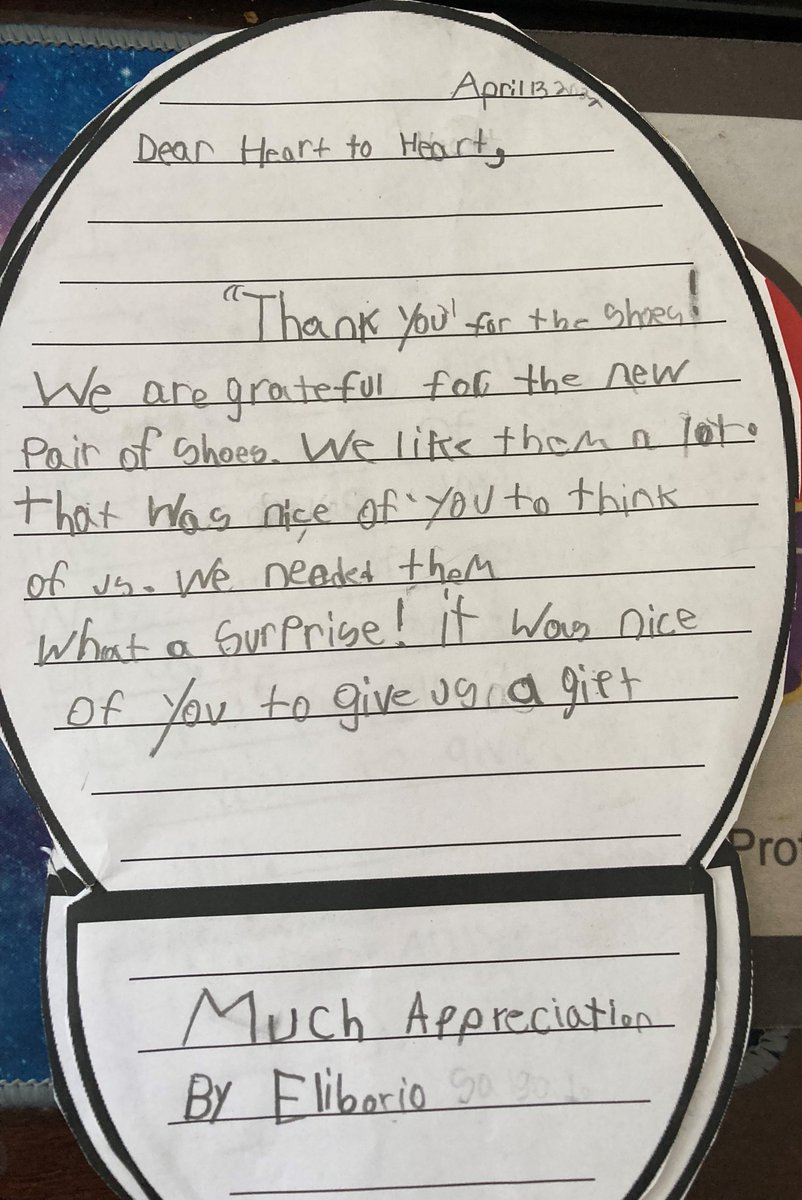 April 13
Dear Heart to Heart,
"Thank you" for the shoes!
We are grateful for the new
Pair of shoes. We like them a lot.
that was nice of you to think
of us. We needed them
What a surprise! it was nice
of you to give us a gift
Pro
Much Appreciation
By Eliborio